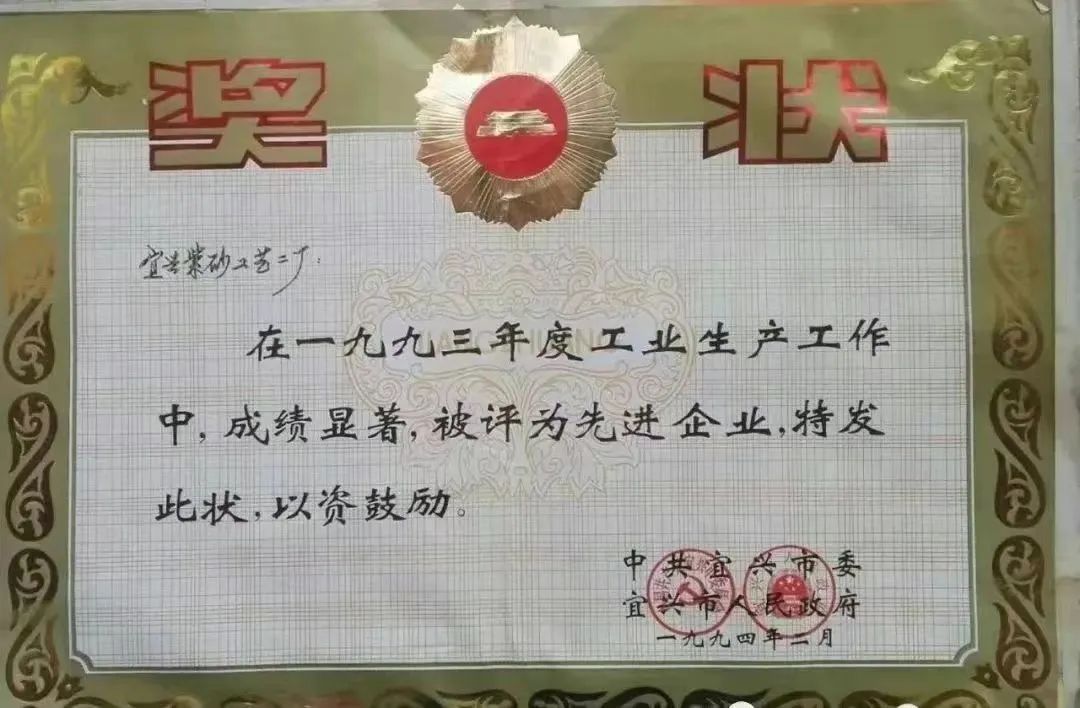 奖状
宜兴紫砂工艺二厂:
在一九九三年度工业生产工作
中,成绩显著,被评为先进企业,特发
此状,以资鼓励。
中共宜兴市委
宜兴市人民政府
一九九四年二月